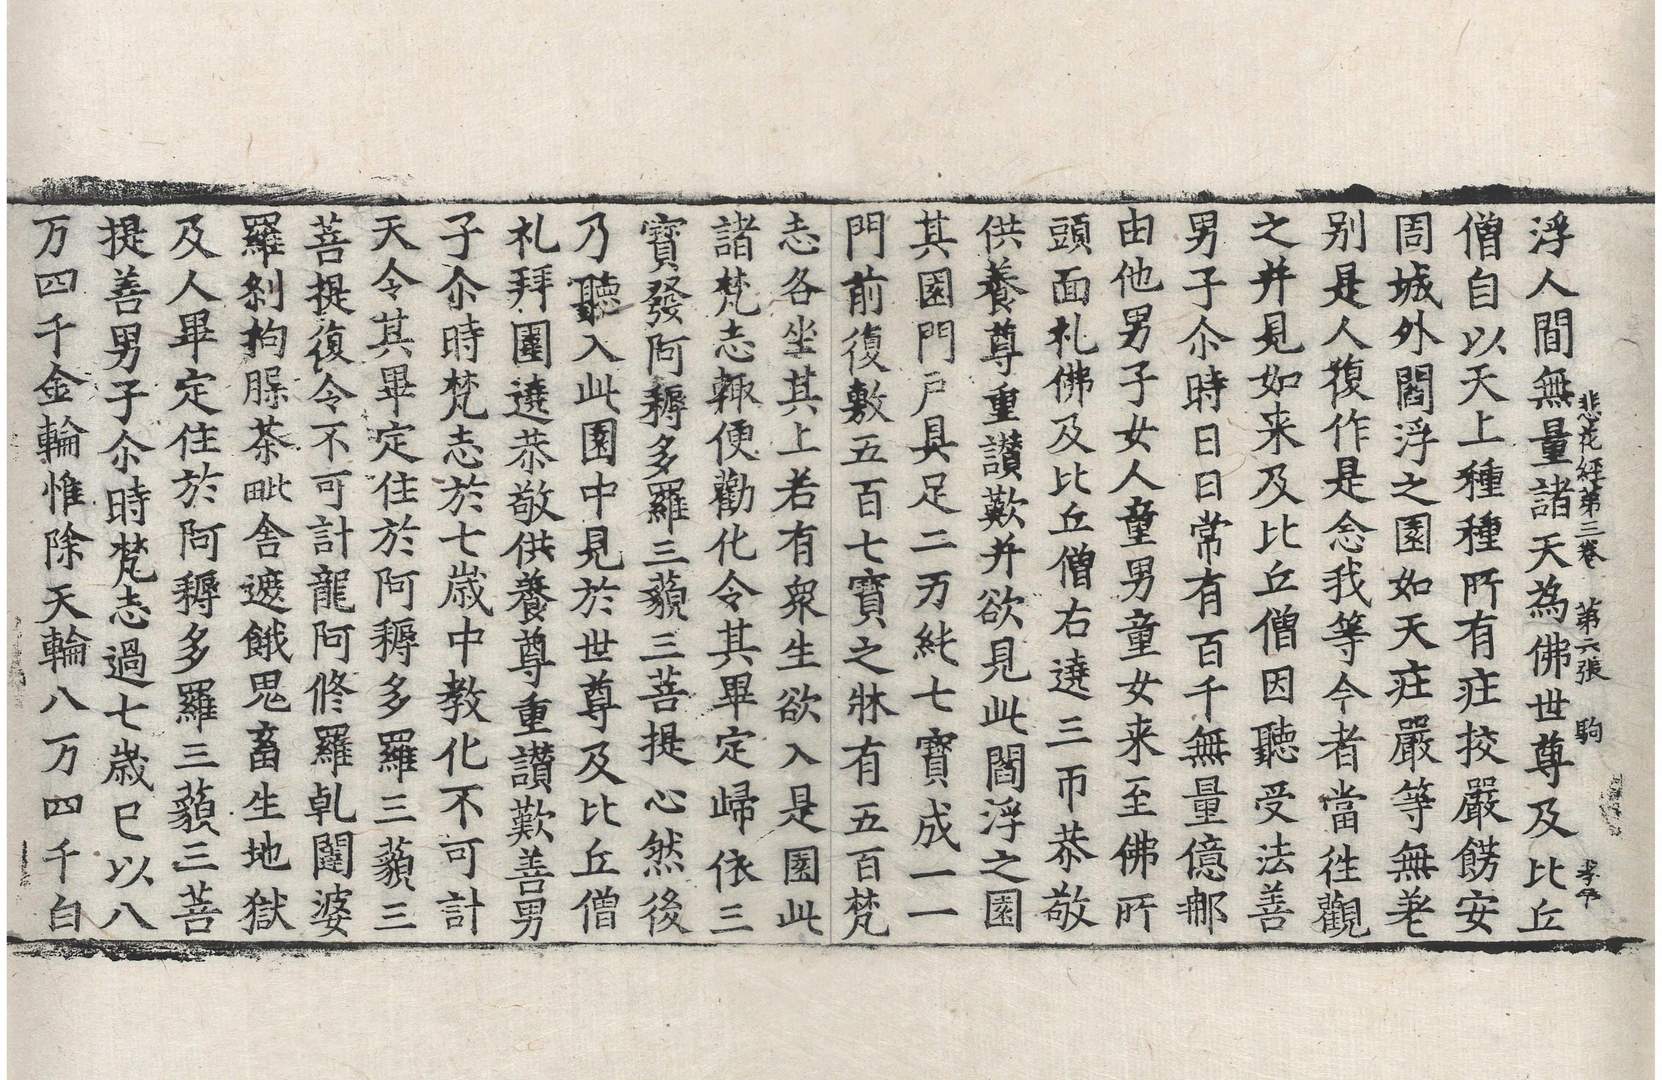 悲花經第三卷　第六張　駒
浮人間無量諸天為佛世尊及比丘
僧自以天上種種所有庄挍嚴餝安
周城外閻浮之園如天庄嚴等無差
别是人復作是念我等今者當徃觀
之并見如来及比丘僧因聽受法善
男子尒時日日常有百千無量億那
由他男子女人童男童女来至佛所
頭面礼佛及比丘僧右遶三帀恭敬
供養尊重讃歎并欲見此閻浮之園
其園門戶具足二万純七寶成一一
門前復敷五百七寶之牀有五百梵
志各坐其上若有衆生欲入是園此
諸梵志輙便勸化令其畢定歸依三
寶發阿耨多羅三藐三菩提心然後
乃聽入此園中見於世尊及比丘僧
礼拜圍遶恭敬供養尊重讃歎善男
子尒時梵志於七歲中教化不可計
天令其畢定住於阿耨多羅三藐三
菩提復令不可計龍阿修羅乹闥婆
羅剎拘腺茶毗舍遮餓鬼畜生地獄
及人畢定住於阿耨多羅三藐三菩
提善男子尒時梵志過七歲已以八
万四千金輪惟除天輪八万四千白